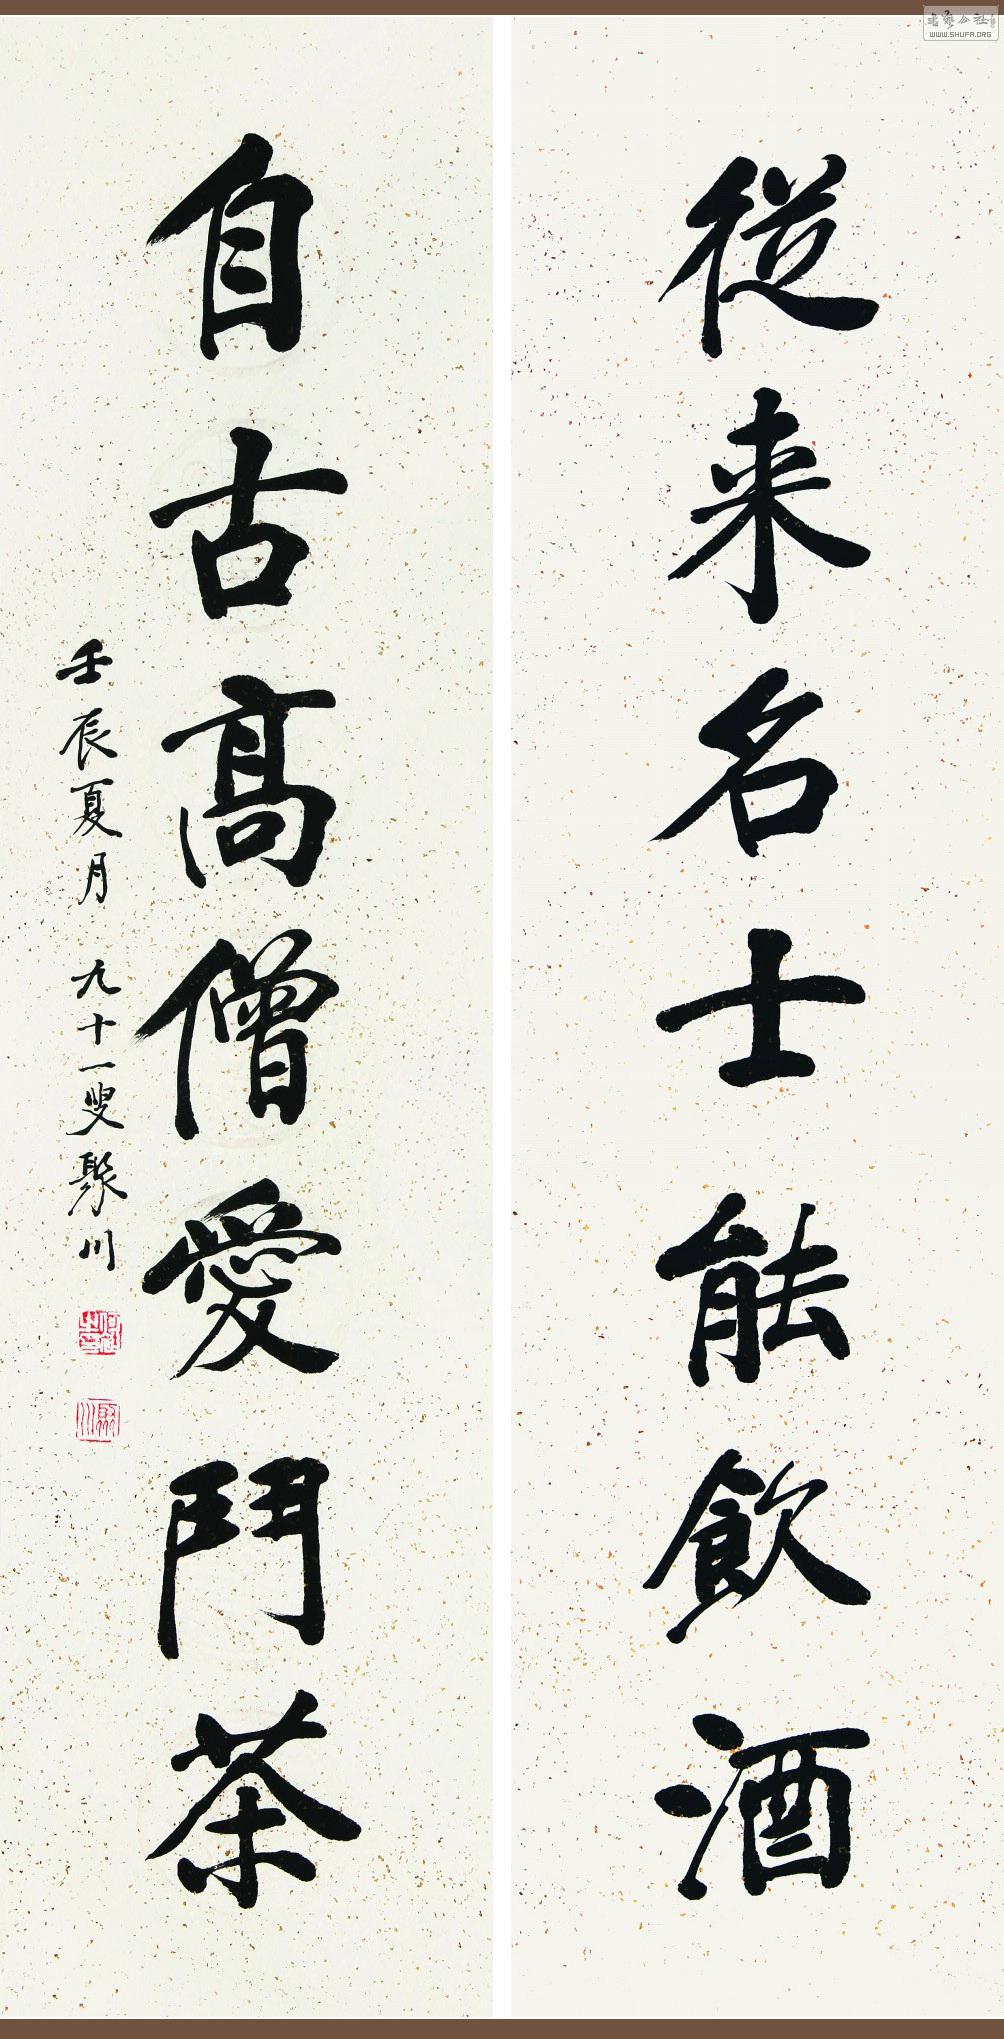 從来名士能飲酒
自古高僧愛鬥茶
壬辰夏月 九十一叟聚川
書藝公社
WWW.SHUFA.ORG